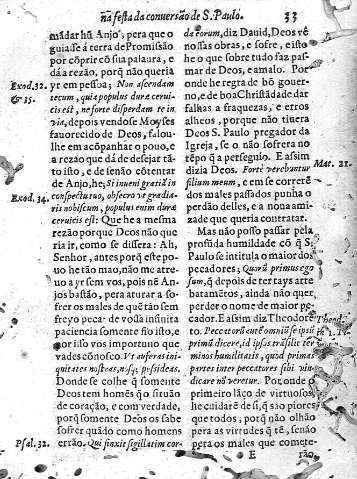 nã festa da conuersão de S. Paulo. 33
mãdar hũ Anjo, pera que o
guiasse á terra de Promissão
por cõprir cõ sua palaura, e
dá a rezão, porq̃ não queria
yr em pessoa; Non ascendam
tecum, quia populus duræ ceruicis
est, ne forte disperdam te in
via, depois vendose Moyses
fauorecido de Deos, falou-
lhe em acõpanhar o pouo,
e a rezão que dá de desejar tã-
to isto, e de senão cõtentar
de Anjo, he, Si inueni gratiã in
conspectu tuo, obsecro vt gradia-
ris nobiscum, populus enim duræ
ceruicis est: Que he a mesma
rezão porque Deos não que
ria ir, como se dissera: Ah,
Senhor, antes por q̃ este po-
uo he tão mao, não me atre-
uo a yr sem vos, pois nẽ An-
jos bastão, pera aturar a so-
frer os males de quẽ tão sem
freyo peca: de vossa infinita
paciencia somente fio isto, e
por isso vos importuno que
vades cõnosco. Vt auferas ini-
quitates nostras, nosq̃; possideas.
Donde se colhe q̃ somente
Deos tem homẽs q̃o situão
de coração, e com verdade,
porq̃ somente Deos os sabe
sofrer quãdo como homens
errão. Qui finxit sigillatim cor-
Exod. 32.
& 35.
Exod. 34.
Psal. 32.
da eorum, diz Dauid, Deos vẽ
nossas obras, e sofre, e isto
he o que sobre tudo faz pas-
mar de Deos, e amalo. Por
onde he regra de bõ gouer-
no, e de boa Christãdade dar
falhas a fraquezas, e erros
alheos, porque não tiuera
Deos S. Paulo pregador da
Igreja, se o não sofrera no
tẽpo q̃ a perseguio. E assim
dizia Deos. Fortè verebuntur
filium meum, e em se correrẽ
dos males passados punha o
perdão delles, e a noua ami-
zade que queria contratar.
Mas não posso passar pela
profũda humildade cõ q̃ S.
Paulo se intitula o maior dos
pecadores; Quorũ primus ego
sum, q̃ depois de ter tays arre
batamẽtos, ainda não quer
perder o nome de maior pe-
cador. E assim diz Theodore-
to. Peccatorũ enim omniũ se ipsũ
primũ dicere, id ipsũ trãsilit ter
minos humilitatis, quod primas
partes inter peccatores sibi vin-
dicare nõ veretur. Por onde o
primeiro laço de virtuosos,
he cuidarẽ de si, q̃ são piores
que todos, porq̃ não olhão
pera as virtudes q̃ tẽ, senão
pera os males que comete-
E rão,
Mat. 21.